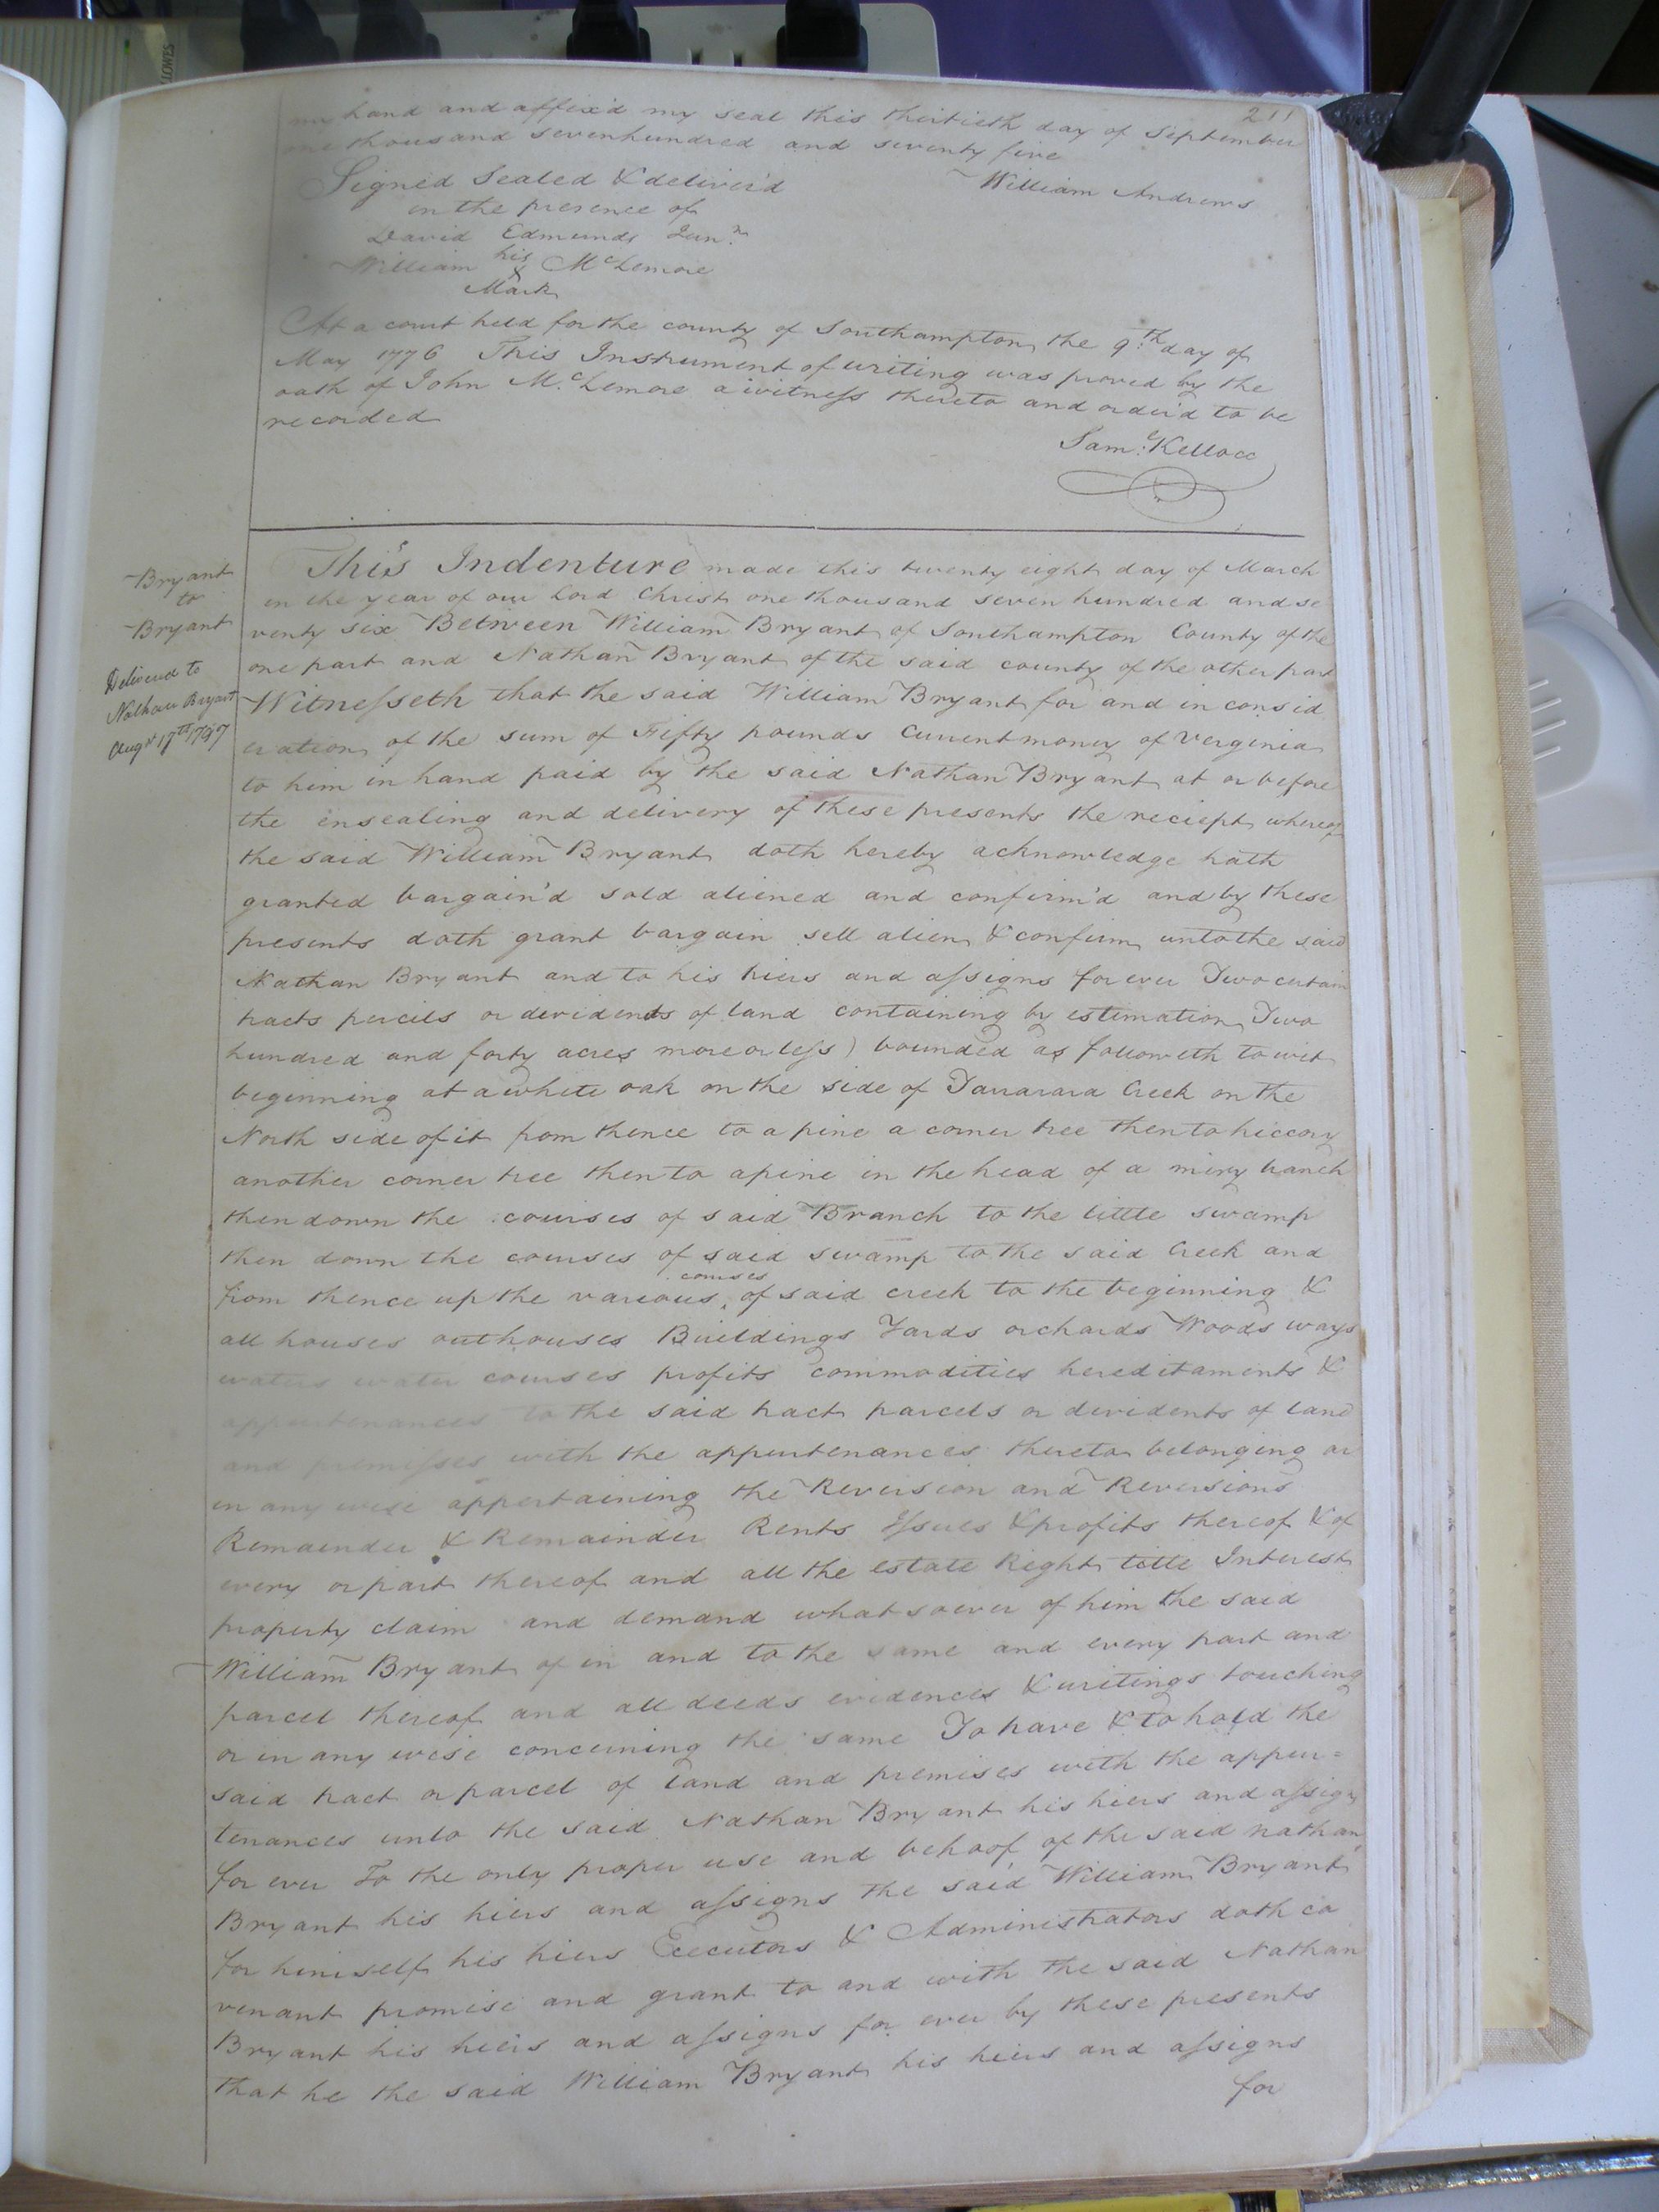 211
my hand and affix'd my seal this thirtieth day of September
one thousand sevenhundred and seventy five
William Andrews
Signed Sealed & deliver'd
in the presence of
David Edmunds Junr.
William his X Mark McLemore
At a court held for the county of Southampton the 9th. day of
May 1776 This Instrument of writing was proved by the
oath of John McLemore a witness thereto and order'd to be
recorded
Sam: Kello cc
Bryant
to
Bryant
Delivered to
Nathan Bryant
Augst 17th 1797
This Indenture made this twenty eight day of March
in the year of our Lord Christ one thousand seven hundred and se
venty six Between William Bryant of Southampton County of the
one part and Nathan Bryant of the said county of the other part
Witnesseth that the said William Bryant for and in consid
eration of the sum of Fifty pounds Current money of Verginia
to him in hand paid by the said Nathan Bryant at or before
the ensealing and delivery of these presents the reciept whereof
the said William Bryant doth hereby acknowledge hath
granted bargain'd sold aliened and confirm'd and by these
presents doth grant bargain sell alien & confirm unto the said
Nathan Bryant and to his hiers and assigns for ever Two certain
tracts percils or devidents of land containing by estimation Two
hundred and forty acres more or less) bounded as followeth to wit
beginning at a white oak on the side of Tarrarara Creek on the
North side of it from thence to a pine a corner tree then to hiccory
another corner tree then to a pine in the head of a miry branch
then down the courses of said Branch to the little swamp
then down the courses of said swamp to the said Creek and
from thence up the various courses of said creek to the beginning &
all houses outhouses Buildings Yards orchards Woods ways
waters water courses profits commodities hereditaments &
appurtenances to the said tract parcels or devidents of land
and premisses with the appurtenances thereto belonging or
in any wise appertaining the Reversion and Reversions
Remainder & Remainder Rents Issues & profits thereof & of
every or part thereof and all the estate Right title Interest
property claim and demand whatsoever of him the said
William Bryant of in and to the same and every part and
parcel thereof and all deeds evidences & writings touching
or in any wise concerning the same To have & to hold the
said tract or parcel of land and premises with the appur=
tenances unto the said Nathan Bryant his hiers and assigns
for ever To the only proper use and behoof of the said Nathan
Bryant his hiers and assigns the said William Bryant
for himself his hiers Executors & Administrators doth co
venant promise and grant to and with the said Nathan
Bryant his hiers and assigns for ever by these presents
that he the said William Bryant his hiers and assigns
for